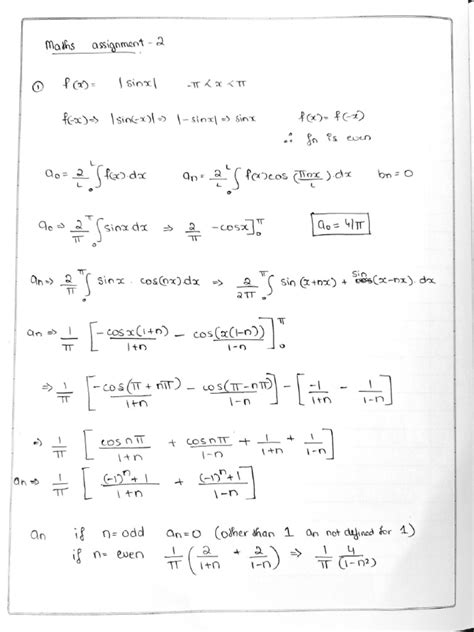 Maths assignment - 2
① f(x) = |sinx| -π < x < π
f(-x) ⇒ |sin(-x)| ⇒ |-sinx| ⇒ sinx f(x) = f(-x)
∴ fn is even
a₀ = 2/L ∫₀ᴸ f(x).dx aₙ = 2/L ∫₀ᴸ f(x)cos(πnx/L).dx bₙ = 0
a₀ ⇒ 2/π ∫₀^π sinx dx ⇒ 2/π -cosx]₀^π a₀ = 4/π
aₙ ⇒ 2/π ∫₀^π sinx. cos(nx).dx ⇒ 2/2π ∫₀^π sin(x+nx) + sin(x-nx).dx
aₙ ⇒ 1/π [-cosx(1+n)/1+n - cos(x(1-n))/1-n]₀^π
⇒ 1/π [-cos(π+nπ)/1+n - cos(π-nπ)/1-n] - [-1/1+n - 1/1-n]
⇒ 1/π [cosnπ/1+n + cosnπ/1-n + 1/1+n + 1/1-n]
aₙ ⇒ 1/π [(-1)ⁿ+1/1+n + (-1)ⁿ+1/1-n]
aₙ if n= odd aₙ=0 (other than 1 aₙ not defined for 1)
if n= even 1/π (2/1+n + 2/1-n) ⇒ 1/π 4/(1-n²)